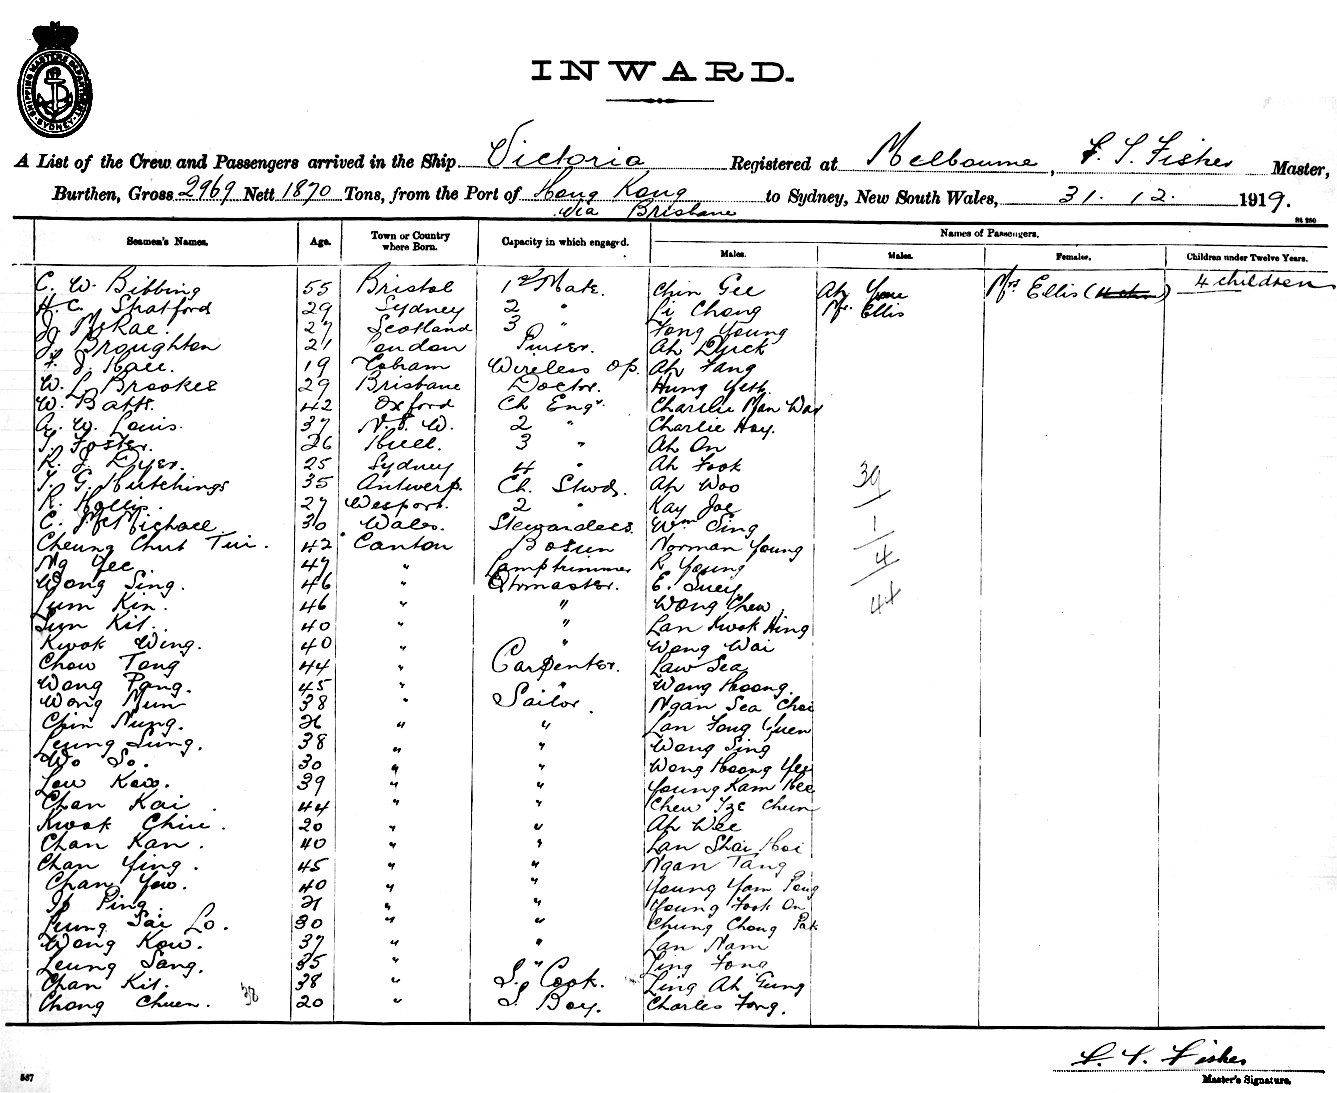 SHIPPING MASTERS DEPARTMENT SYDNEY
INWARD.
A List of the Crew and Passengers arrived in the Ship Victoria Registered at Melbourne, F. S. Fisher Master,
Burthen, Gross 2969 Nett 1870 Tons, from the Port of Hong Kong to Sydney, New South Wales, 31. 12. 1919.
via Brisbane
Seamen's Names. Age. Town or Country where Born. Capacity in which engaged. Names of Passengers.
Males. Males. Females. Children under Twelve Years.
C. W. Bibbing 55 Bristol 1st Mate. Chin Gee Ah Mrs Ellis ( ) 4 children
H. C. Shatford 29 Sydney 2 " Li Chong Mr. Ellis
J. McRae. 27 Scotland 3 " Fong Young
J. Broughton 21 London Purser. Ah Duck
F. J. Hall. 19 Cobham Wireless Op. Ah Fang
W. L. Brookes 29 Brisbane Doctor. Hung Yeth
W. Batt. 42 Oxford Ch Engr. Charlie Man War
A. W. Louis. 37 N.S.W. 2 " Charlie Hoy.
T. Foster. 26 Hull. 3 " Ah On
R. J. Dyer. 25 Sydney 4 " Ah Fook 39
T. G. Hutchings 35 Antwerp. Ch. Stwd. Ah Woo
R. Hollis. 27 Wesport. 2 " Kay Joe
C. McMichael 30 Wales. Stewardess. Wm Sing 1
Cheung Chut Tui. 42 Canton Bosun Norman Young
Ng Yee 47 " Lamptrimmer R Young 4
Wong Sing. 46 " Qtrmaster. E. Suey
Lum Kin. 46 " " Wong Chew 44
Sun Kit. 40 " " Lan Kwok Hing
Kwok Wing. 40 " " Wong Wai
Chow Tong 44 " Carpenter. Law Sea
Wong Pang. 45 " " Wong Hoong.
Wong Mun 38 " Sailor. Ngan Sea Choi
Chin Nung. 26 " " Lan Fong Yuen
Leung Sung. 38 " " Wong Sing
Wo So. 30 " " Wong Hoong Yee
Low Kow. 39 " " Young Kam Kee
Chan Kai. 44 " " Chew Tze Chun
Kwok Chiu. 20 " " Ah Wee
Chan Kan. 40 " " Lan Shai Hoi
Chan Ying. 45 " " Ngan Tang
Chan Yow. 40 " " Young Yom Pong
Ip Ping. 21 " " Young Fook On
Fung Sai Lo. 30 " " Chung Chong Pak
Wong Kow. 37 " " Lan Nam
Leung Sang. 35 " " Ling Fong
Chan Kit. 38 " S. Cook. Ling Ah Gung
Chong Chuen. 38 20 " S. Boy. Charles Fong.
F. S. Fisher
Master's Signature.
587